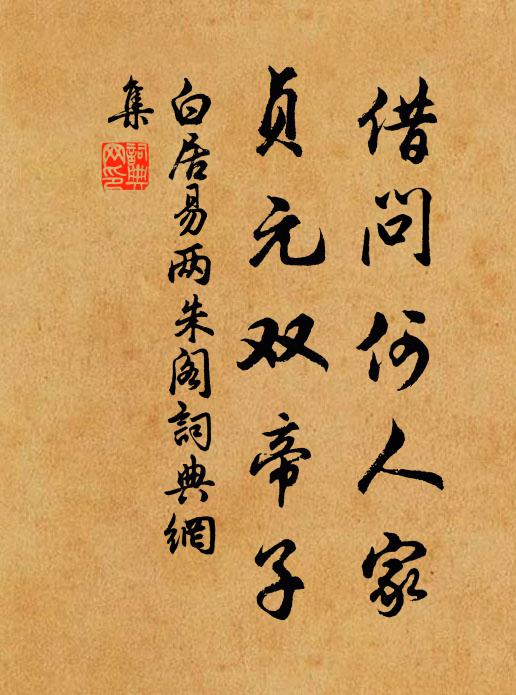 借问何人家
贞元双帝子
白居易两朱阁詞典網
集
詞典
网印